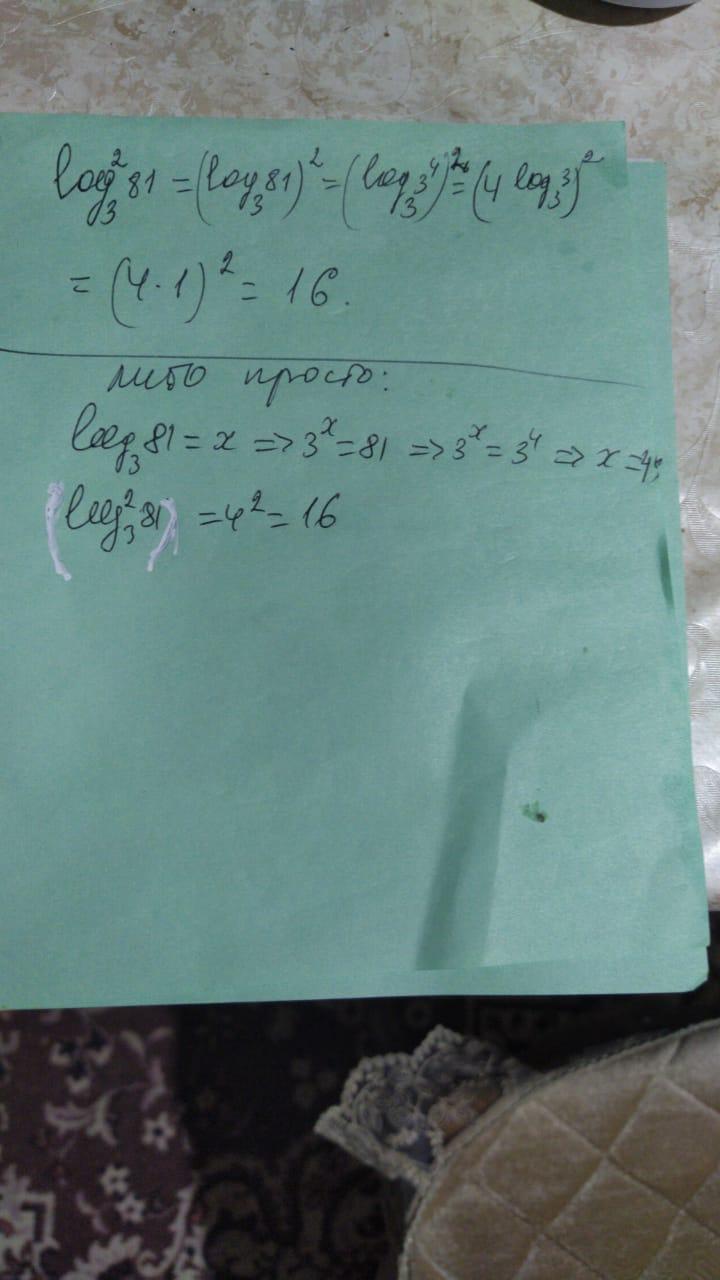 log₃²81 = (log₃81)² = (log₃3⁴)² = (4 log₃3)²
= (4·1)² = 16.
либо просто:
log₃81 = x => 3ˣ = 81 => 3ˣ = 3⁴ => x = 4;
(log₃²81) = 4² = 16